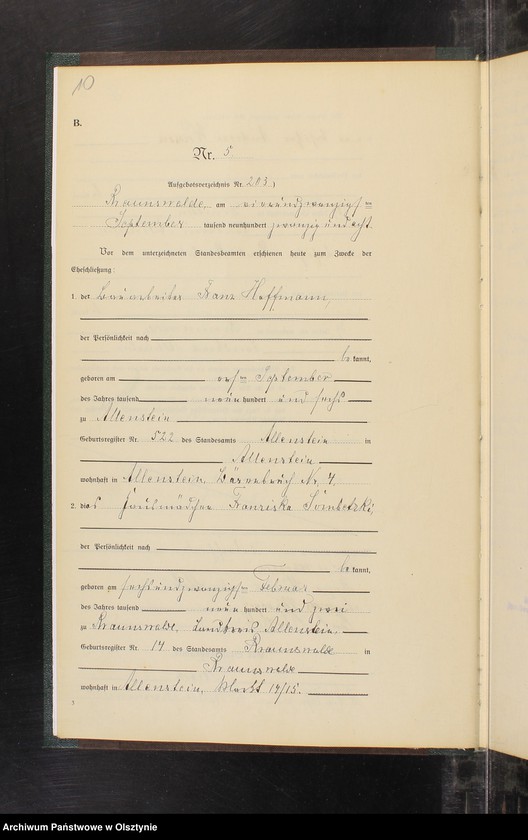 10
B.
Nr. 5
Aufgebotsverzeichnis Nr. 203.)
Braunswalde, am vierundzwanzigsten
September tausend neunhundert zwanzig und acht.
Vor dem unterzeichneten Standesbeamten erschienen heute zum Zwecke der
Eheschließung:
1. der Bauarbeiter Franz Hoffmann,
der Persönlichkeit nach
bekannt,
geboren am September
des Jahres tausend neun hundert und sechs
zu Allenstein
Geburtsregister Nr. 522 des Standesamts Allenstein in
Allenstein
wohnhaft in Allenstein, Nr. 4,
2. das Hausmädchen Franziska
der Persönlichkeit nach
bekannt,
geboren am sechsundzwanzigsten Februar
des Jahres tausend neun hundert und zwei
zu Braunswalde, Landkreis Allenstein,
Geburtsregister Nr. 14 des Standesamts Braunswalde in
Braunswalde
wohnhaft in Allenstein, Markt 14/15.
Archiwum Państwowe w Olsztynie